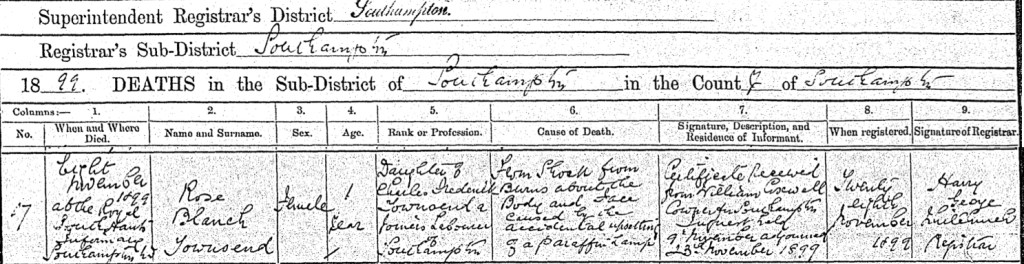 Superintendent Registrar's District Southampton.
Registrar's Sub-District Southampton
1899. DEATHS in the Sub-District of Southampton in the County of Southampton
Columns:— 1. 2. 3. 4. 5. 6. 7. 8. 9.
No. When and Where Died. Name and Surname. Sex. Age. Rank or Profession. Cause of Death. Signature, Description, and Residence of Informant. When registered. Signature of Registrar.
17
Eight
November
1899
at the Royal
South Hants
Infirmary
Southampton
Rose
Blanch
Townsend
Female
1
year
Daughter of
Charles Frederick
Townsend a
Joiners Labourer
of
Southampton
From Shock from
Burns about the
Body and Face
caused by the
accidental upsetting
of a paraffin lamp
Certificate Received
from William
Coroner for Southampton
Inquest held
9th November adjourned
23rd November 1899
Twenty
eighth
November
1899
Harry
George
Registrar